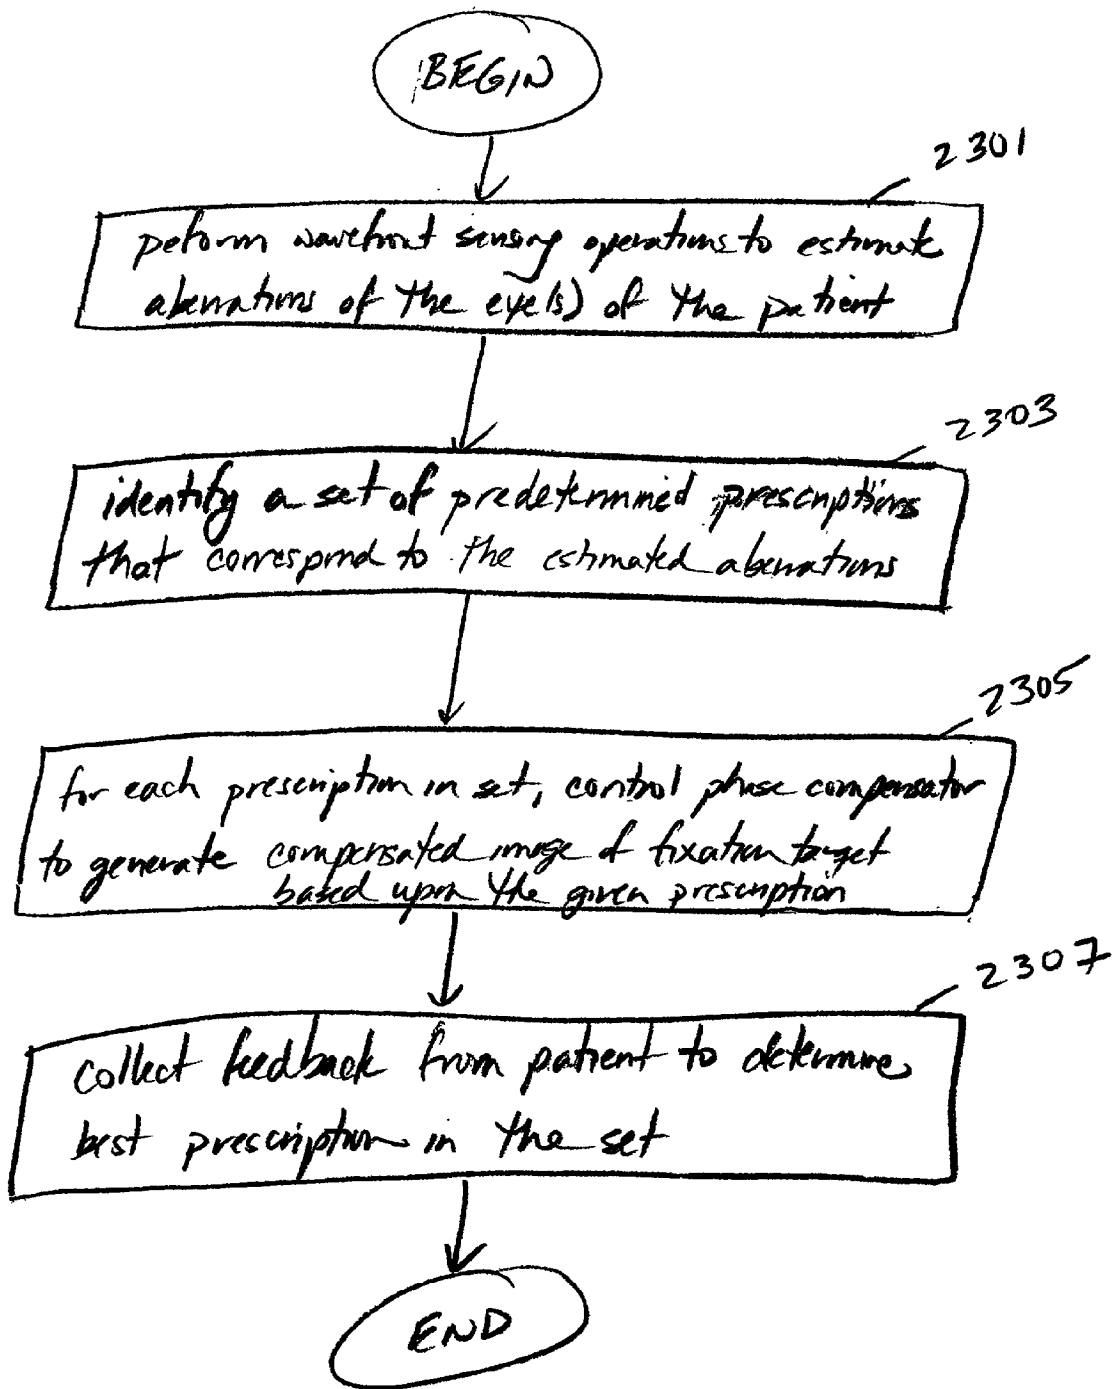 BEGIN
2301
peform wavefront sensing operations to estimate
aberrations of the eye(s) of the patient
2303
identify a set of predetermined prescriptions
that correspond to the estimated aberrations
2305
for each prescription in set, control phase compensator
to generate compensated image of fixation target
based upon the given prescription
2307
collect feedback from patient to determine
best prescription in the set
END